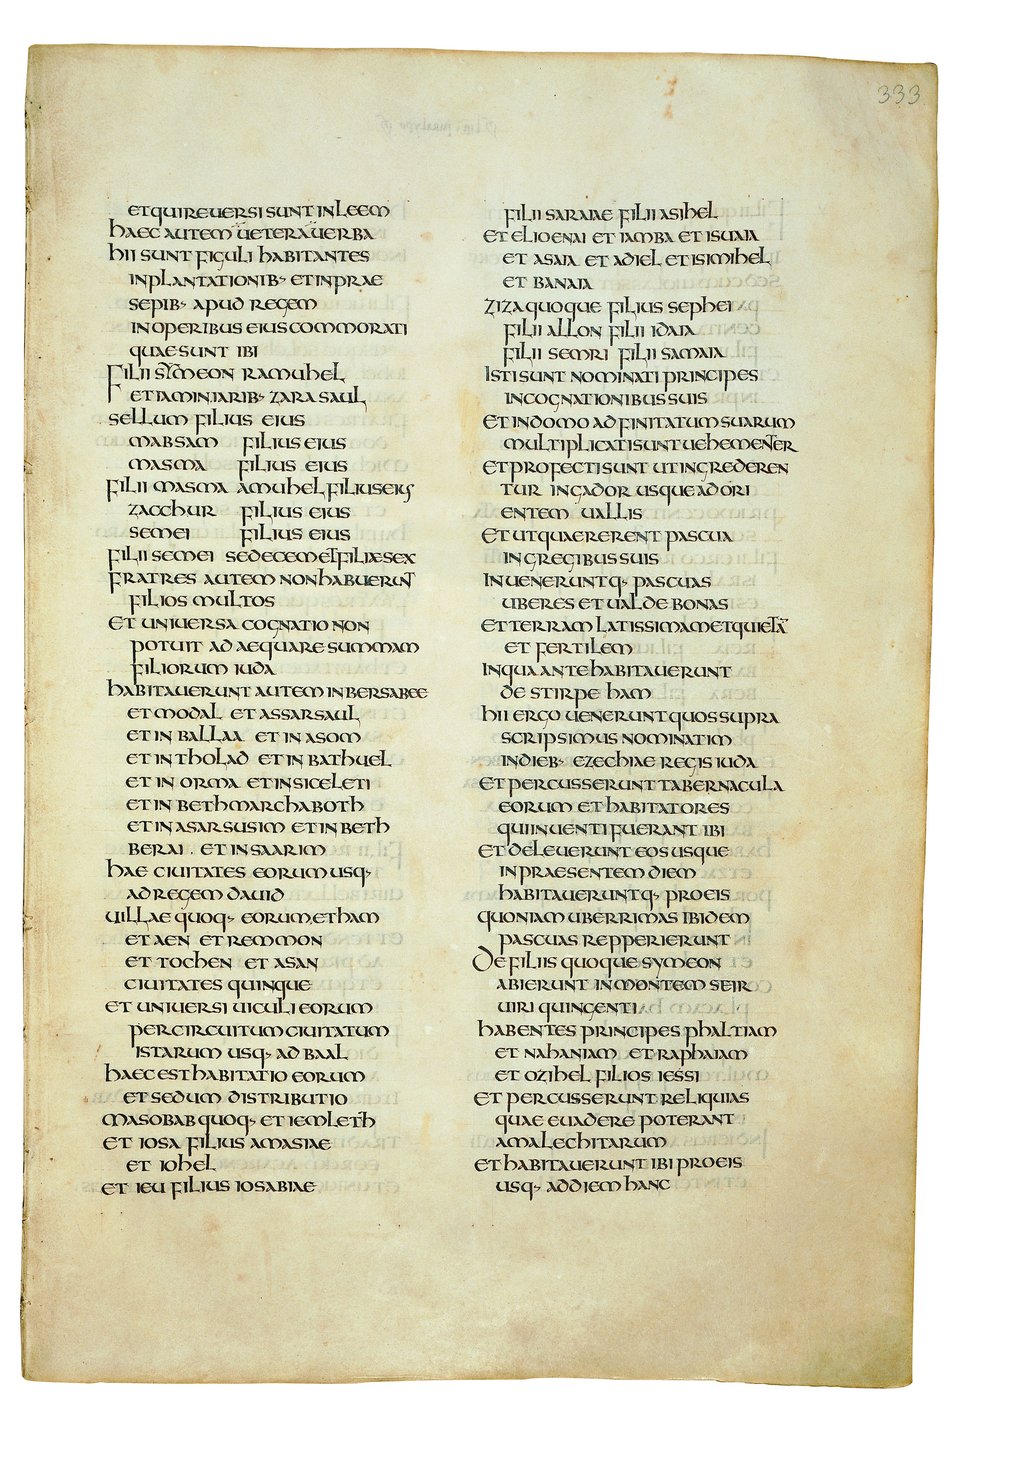 333
ET QUI REUERSI SUNT IN LEEM
HAEC AUTEM UETERA UERBA
HII SUNT FIGULI HABITANTES
IN PLANTATIONIB· ET IN PRAE
SEPIB· APUD REGEM
IN OPERIBUS EIUS COMMORATI
QUAE SUNT IBI
FILII SYMEON RAMUHEL
ET IAMIN IARIB· ZARA SAUL
SELLUM FILIUS EIUS
MABSAM FILIUS EIUS
MASMA FILIUS EIUS
FILII MASMA AMUHEL FILIUS EIUS
ZACCHUR FILIUS EIUS
SEMEI FILIUS EIUS
FILII SEMEI SEDECEM ET FILIAE SEX
FRATRES AUTEM NON HABUERUNT
FILIOS MULTOS
ET UNIUERSA COGNATIO NON
POTUIT ADAEQUARE SUMMAM
FILIORUM IUDA
HABITAUERUNT AUTEM IN BERSABEE
ET MODAL ET ASSARSAUL
ET IN BALLAA ET IN ASOM
ET IN THOLAD ET IN BATHUEL
ET IN ORMA ET IN SICELETI
ET IN BETHMARCHABOTH
ET IN ASARSUSIM ET IN BETH
BERAI . ET IN SAARIM
HAE CIUITATES EORUM USQ·
AD REGEM DAUID
UILLAE QUOQ· EORUM, ETHAM
ET AEN ET REMMON
ET TOCHEN ET ASAN
CIUITATES QUINQUE
ET UNIUERSI UICULI EORUM
PER CIRCUITUM CIUITATUM
ISTARUM USQ· AD BAAL
HAEC EST HABITATIO EORUM
ET SEDUM DISTRIBUTIO
MASOBAB QUOQ· ET IEMLETH
ET IOSA FILIUS AMASIAE
ET IOHEL
ET IEU FILIUS IOSABIAE
FILII SARAIAE FILII ASIHEL
ET ELIOENAI ET IAMBA ET ISUAIA
ET ASAIA ET ADIEL ET ISIMIHEL
ET BANAIA
ZIZA QUOQUE FILIUS SEPHEI
FILII ALLON FILII IDAIA
FILII SEMRI FILII SAMAIA
ISTI SUNT NOMINATI PRINCIPES
IN COGNATIONIBUS SUIS
ET IN DOMO ADFINITATUM SUARUM
MULTIPLICATI SUNT UEHEMENTER
ET PROFECTI SUNT UT INGREDEREN
TUR IN GADOR USQUE AD ORI
ENTEM UALLIS
ET UT QUAERERENT PASCUA
IN GREGIBUS SUIS
INUENERUNTQ· PASCUAS
UBERES ET UALDE BONAS
ET TERRAM LATISSIMAM ET QUIETĀ
ET FERTILEM
IN QUA ANTE HABITAUERUNT
DE STIRPE HAM
HII ERGO UENERUNT QUOS SUPRA
SCRIPSIMUS NOMINATIM
IN DIEB· EZECHIAE REGIS IUDA
ET PERCUSSERUNT TABERNACULA
EORUM ET HABITATORES
QUI INUENTI FUERANT IBI
ET DELEUERUNT EOS USQUE
IN PRAESENTEM DIEM
HABITAUERUNTQ· PRO EIS
QUONIAM UBERRIMAS IBIDEM
PASCUAS REPPERIERUNT
DE FILIIS QUOQUE SYMEON
ABIERUNT IN MONTEM SEIR
UIRI QUINGENTI
HABENTES PRINCIPES PHALTIAM
ET NAHANIAM ET RAPHAIAM
ET OZIHEL FILIOS IESSI
ET PERCUSSERUNT RELIQUIAS
QUAE EUADERE POTERANT
AMALECHITARUM
ET HABITAUERUNT IBI PRO EIS
USQ· AD DIEM HANC